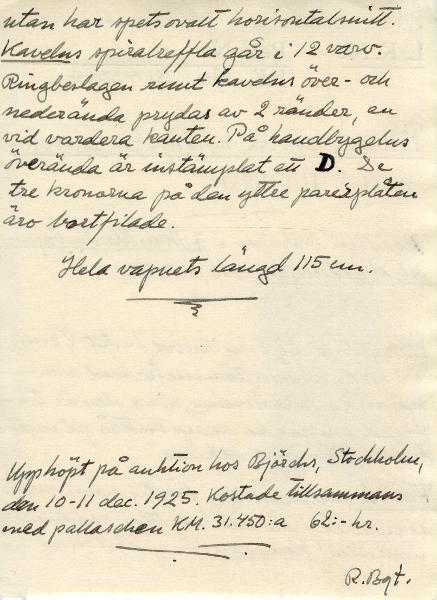 utan har spetsovalt horisontalsnitt.
Kavelns spiralreffla går i 12 varv.
Ringbeslagen runt kavelns över- och
nederända prydas av 2 ränder, en
vid vardera kanten. På handbygelns
överända är instämplat ett D. De
tre kronorna på den yttre parerplåten
äro bortfilade.
Hela vapnets längd 115 cm.
Upphöpt på auktion hos Björcks, Stockholm,
den 10-11 dec. 1925. Kostade tillsammans
med pallaschen KM. 31.450:a 62:- kr.
R. Bgt.